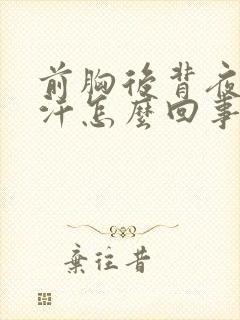 前胸後背夜
汗怎麼回事
棄往昔